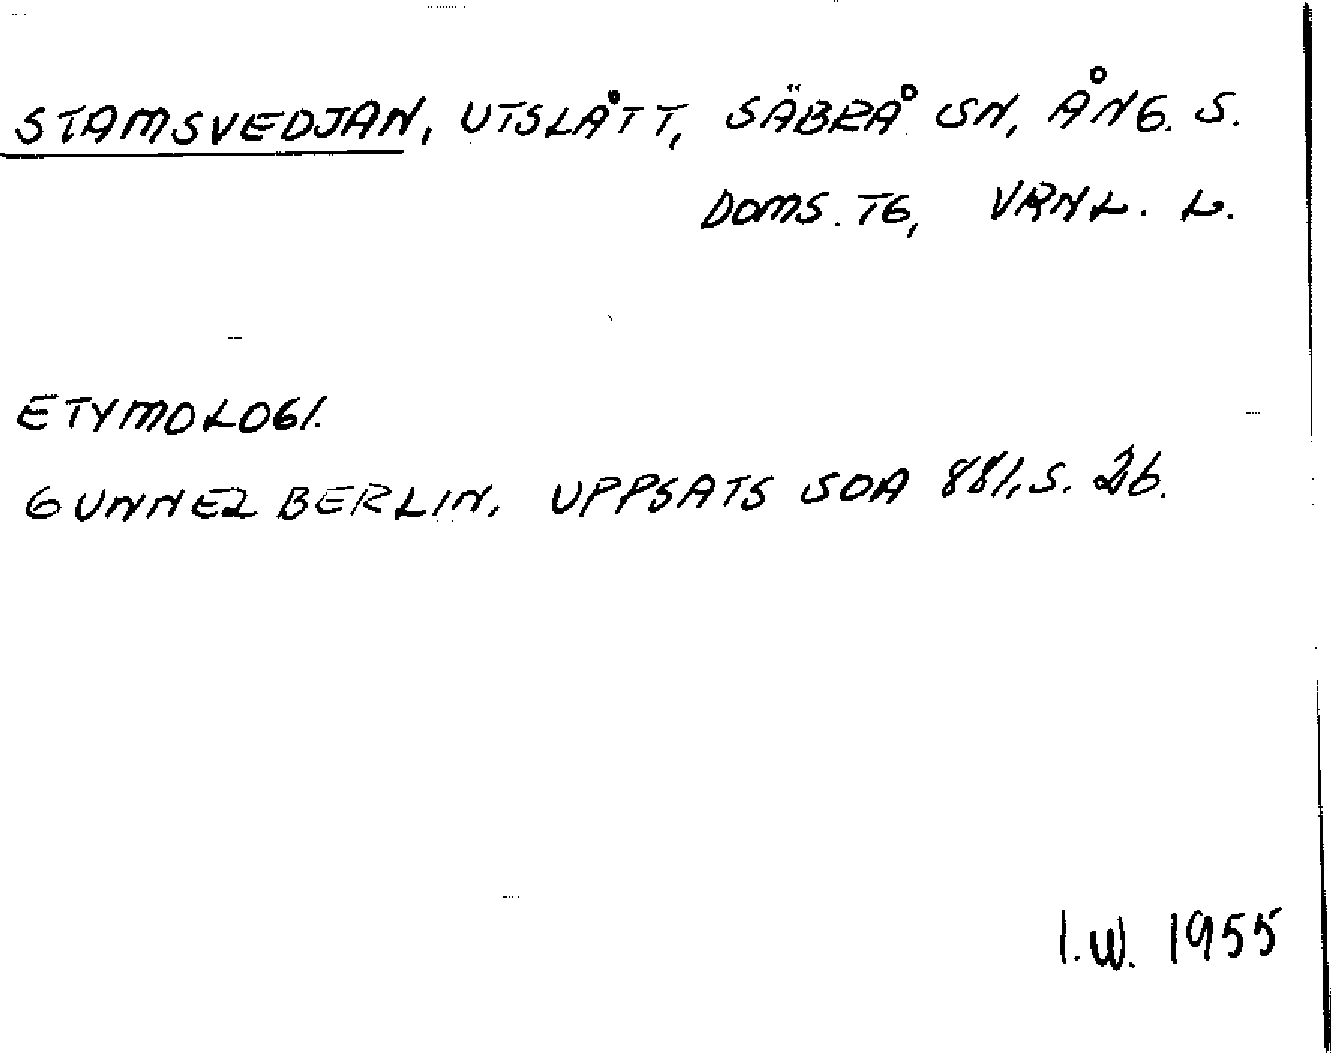 STAMSVEDJAN, UTSLÅTT, SÄBRÅ SN, ÅNG. S.
DOMS. TG, VRNL. L.
ETYMOLOGI.
GUNNEL BERLIN, UPPSATS SOA 881, S. 26.
I.W. 1955